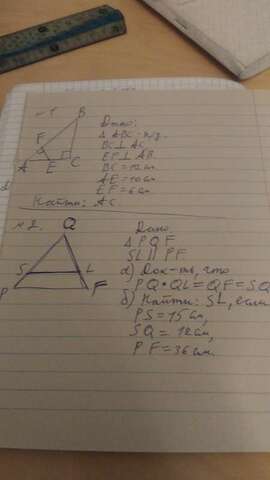 №1
B
F
A E C
Дано:
△ ABC - п/у.
BC ⊥ AC
EF ⊥ AB
BC = 12 см
AE = 10 см
EF = 6 см
Найти: AC
№2.
Q
S L
P F
Дано
△ PQF
SL || PF
а) Док-ть, что
PQ • QL = QF = SQ
б) Найти: SL, если
PS = 15 см,
SQ = 12 см,
PF = 36 см.